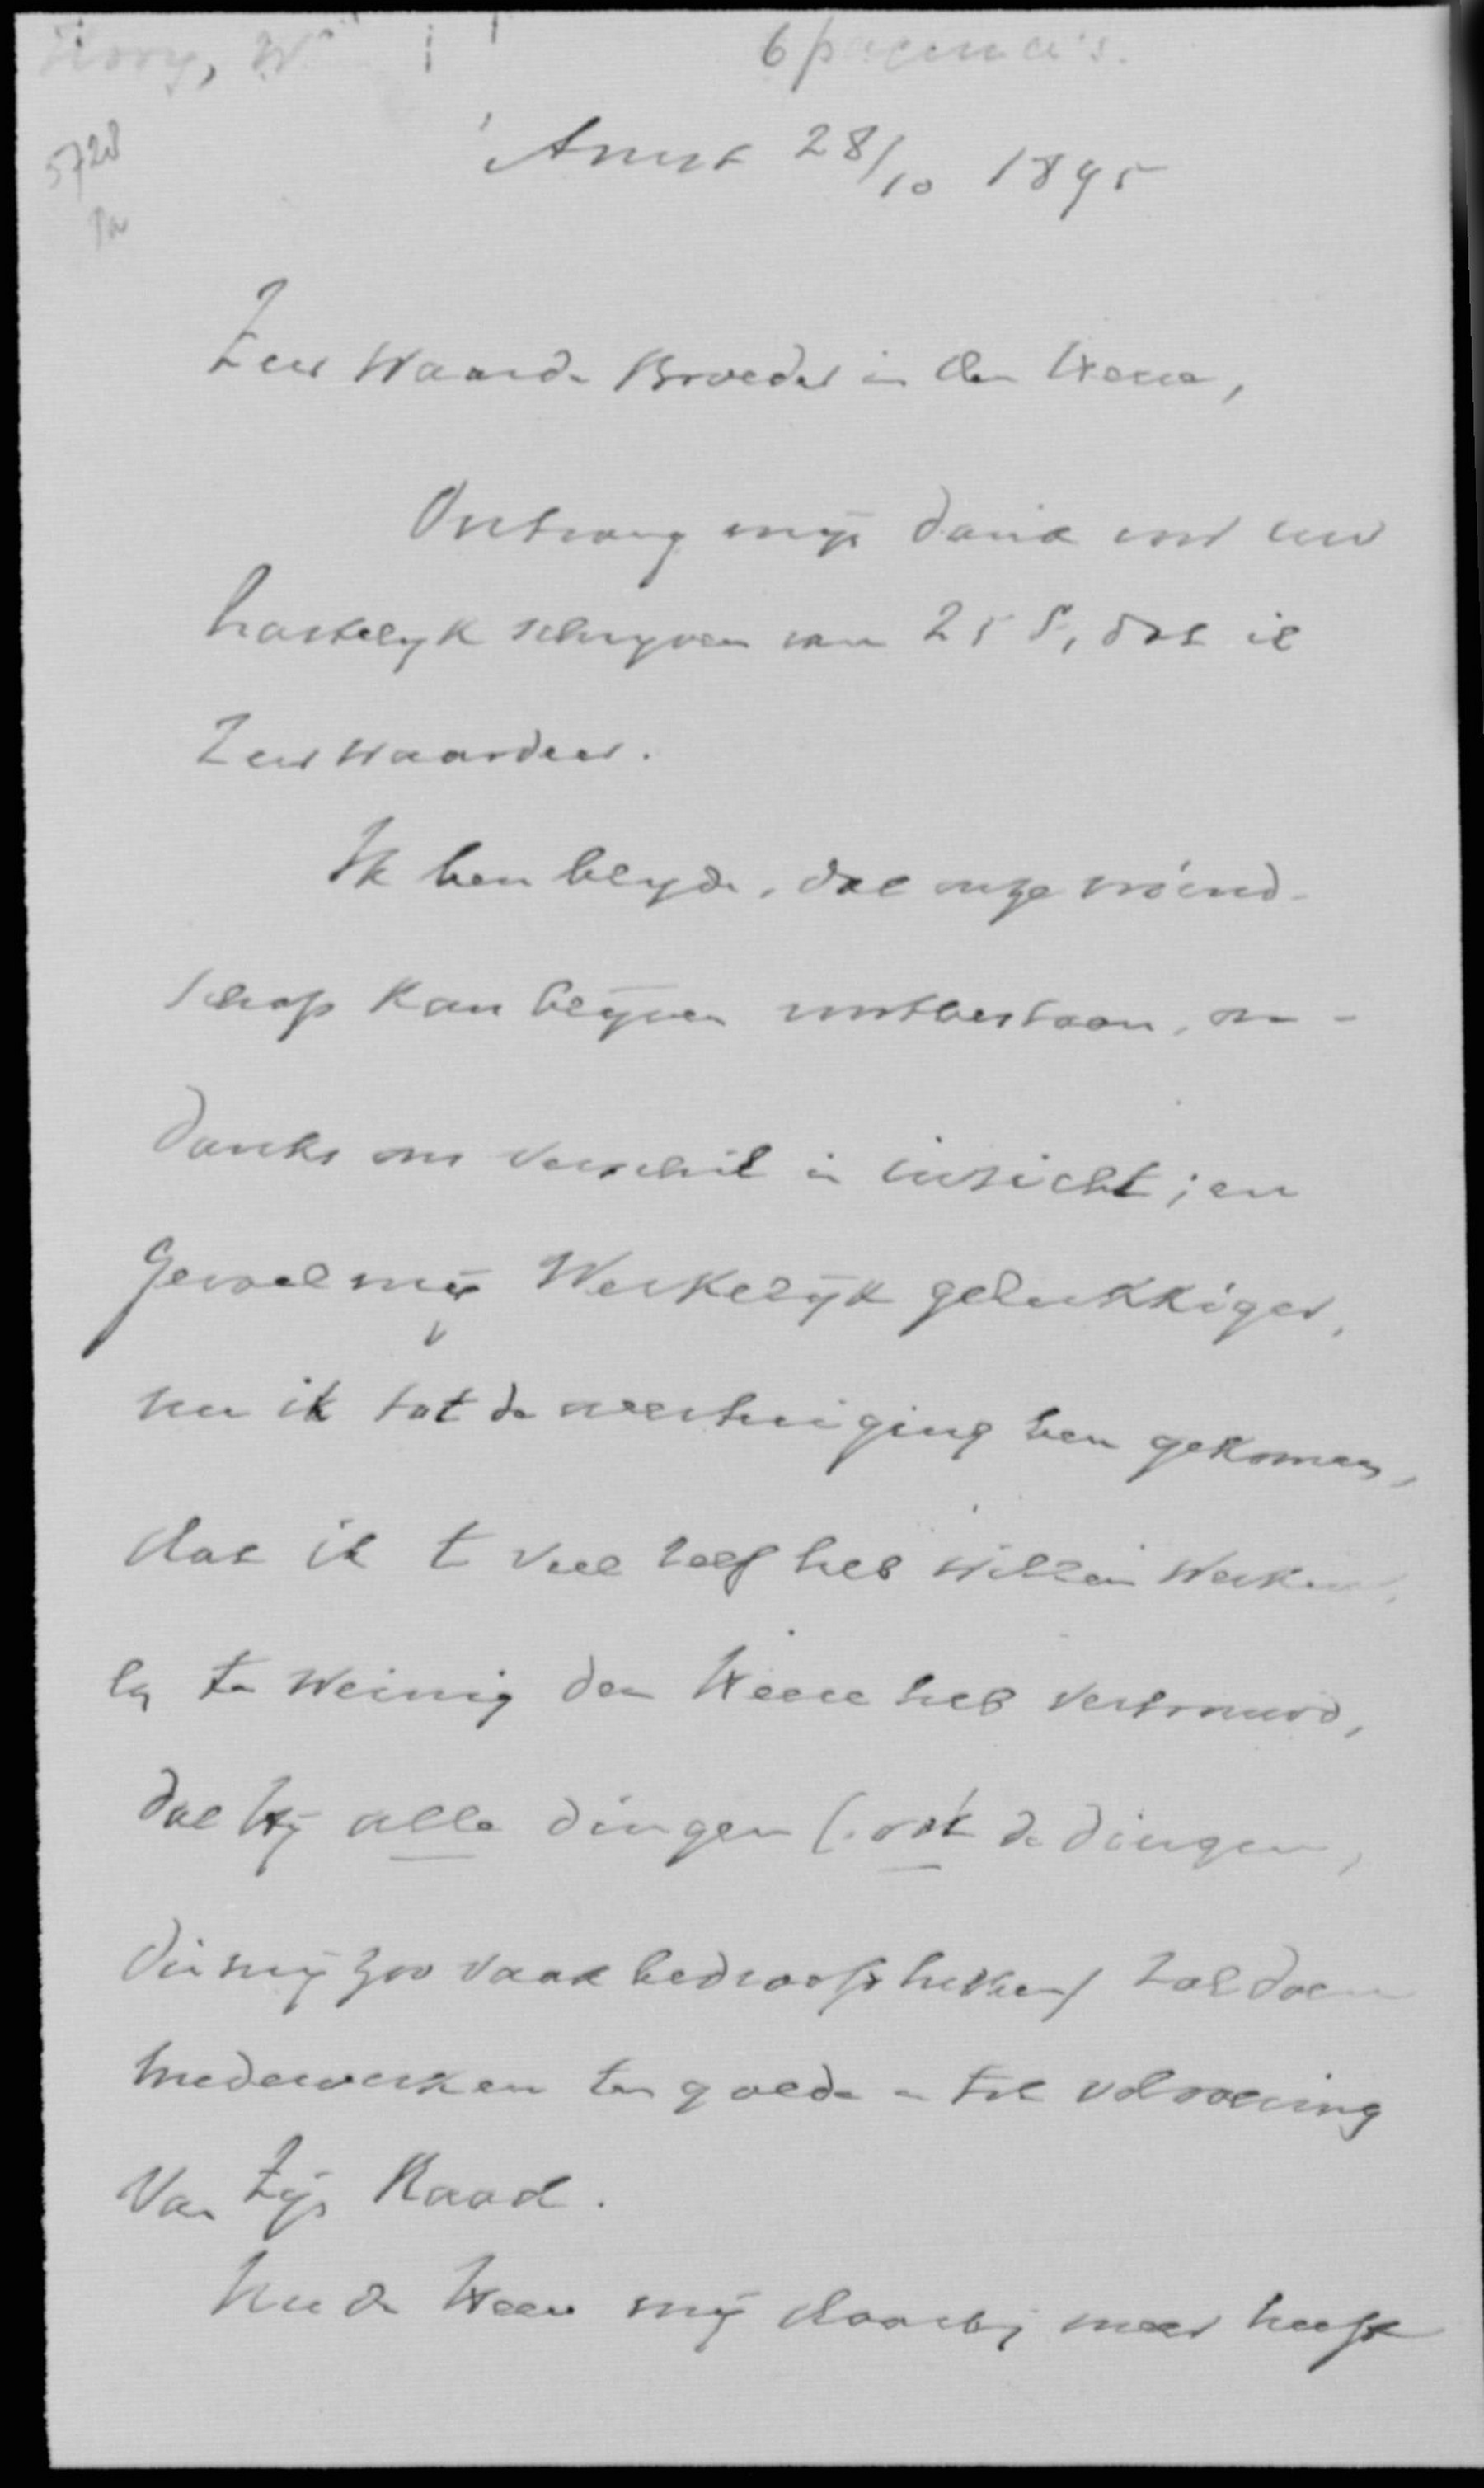 6 pagina's.
5728
Pa
Amst 28/10 1895
Zeer Waarde Broeder in den Heere,
Ontvang mijn dank voor uw
hartelyk schryven van 25 S, dat ik
zeer waardeer.
Ik ben blyde, dat onze vriend-
schap kan blijven voortbestaan, on-
danks ons verschil in inzicht; en
gevoel mij Werkelijk gelukkiger,
nu ik tot de overtuiging ben gekomen,
dat ik te veel zelf heb willen werken,
en te weinig den Heere heb vertrouwd,
dat Hij alle dingen (ook de dingen,
die mij zoo vaak bedroefd hebben) zal doen
medewerken ten goede en tot volvoering
van Zijn Raad.
Nu de Heere mij daarbij meer heeft